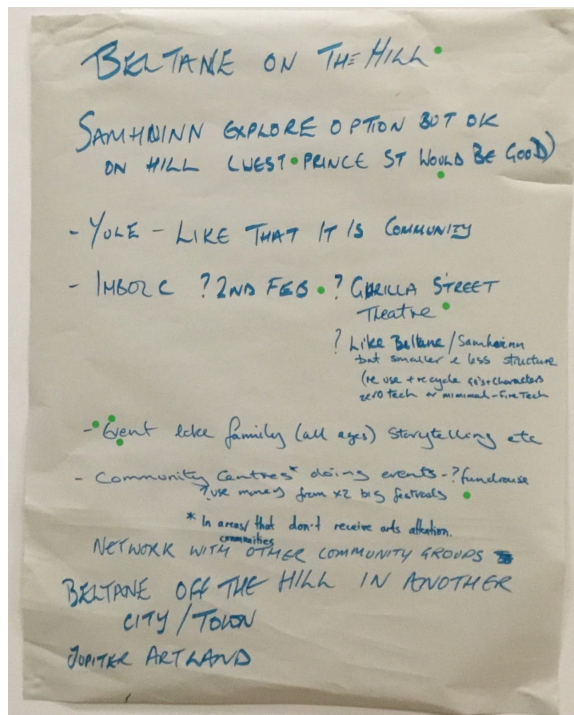 BELTANE ON THE HILL
SAMHUINN EXPLORE OPTION BUT OK
ON HILL (WEST PRINCE ST WOULD BE GOOD)
- YULE - LIKE THAT IT IS COMMUNITY
- IMBOLC ? 2ND FEB ? GORILLA STREET
Theatre
? Like Beltane/Samhainn
but smaller & less structure
(re use + recycle characters
zero tech or minimal - Fire Tech
- Event like family (all ages) storytelling etc
- Community Centres* doing events - ? fundraise
? use money from x2 big festivals
* In areas/ that don't receive arts attention.
communities
NETWORK WITH OTHER COMMUNITY GROUPS
BELTANE OFF THE HILL IN ANOTHER
CITY/TOWN
JUPITER ARTLAND